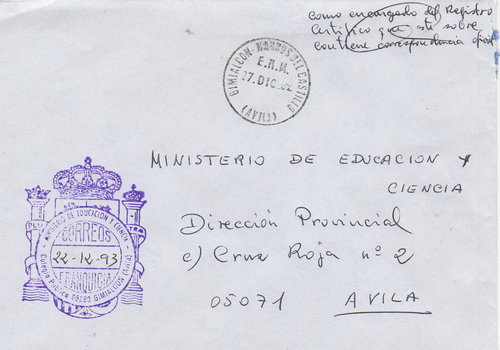 como encargado del Registro
Certifico que este sobre
contiene correspondencia oficial
GIMIALCON-MANROS DEL CASTILLO
E.R.M.
27. DIC.
(AVILA)
MINISTERIO DE EDUCACION Y
CIENCIA
Dirección Provincial
c/ Cruz Roja nº 2
05071 AVILA
MINISTERIO DE EDUCACION Y CIENCIA
CORREOS
22-12-93
FRANQUICIA
Colegio Público 05380 GIMIALCON (Avila)